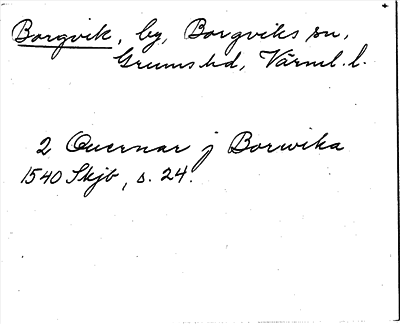 Borgvik, by, Borgviks sn,
Grums hd, Värml. l.
2 Quernar j Borwika
1540 Skjb, s. 24.